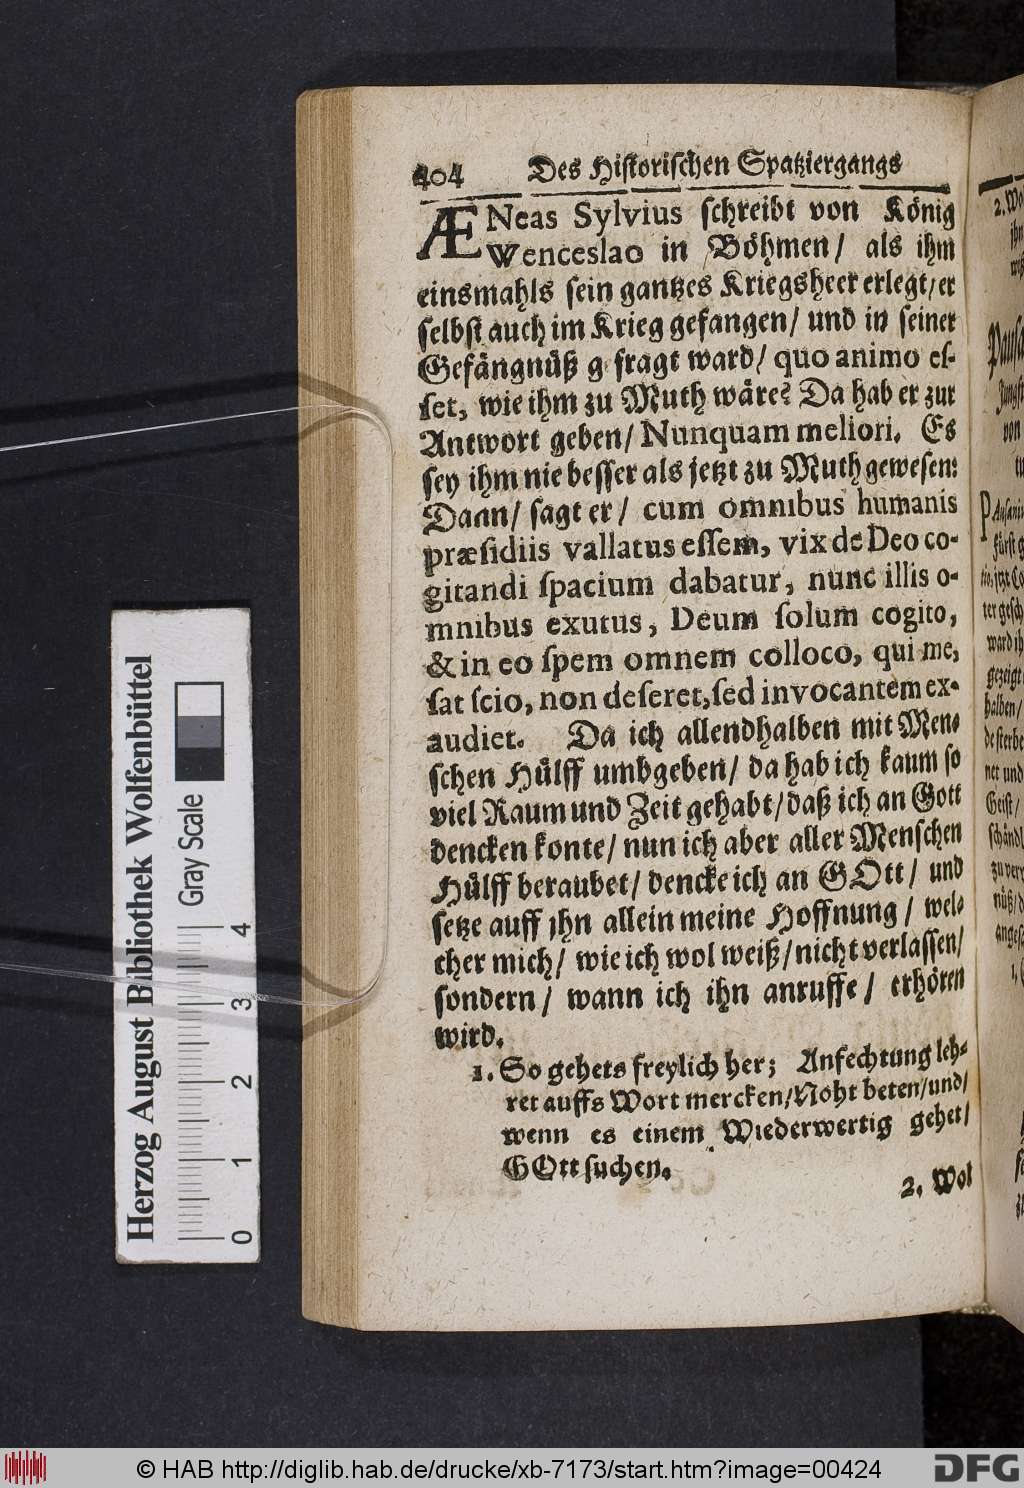 404 Des Hiſtoriſchen Spatziergangs
ÆNeas Sylvius ſchreibt von König
Wenceslao in Böhmen/ als ihm
einsmahls ſein gantzes Kriegsheer erlegt/ er
ſelbſt auch im Krieg gefangen/ und in ſeiner
Gefängnüß g fragt ward/ quo animo eſ-
ſet, wie ihm zu Muth wäre? Da hab er zur
Antwort geben/ Nunquam meliori. Es
ſey ihm nie beſſer als jetzt zu Muth gewesen:
Dann/ ſagt er/ cum omnibus humanis
præſidiis vallatus eſſem, vix de Deo co-
gitandi ſpacium dabatur, nunc illis o-
mnibus exutus, Deum ſolum cogito,
& in eo ſpem omnem colloco, qui me,
ſat ſcio, non deſeret, ſed invocantem ex-
audiet. Da ich allendhalben mit Men-
ſchen Hülff umbgeben/ da hab ich kaum ſo
viel Raum und Zeit gehabt/ daß ich an Gott
dencken konte/ nun ich aber aller Menſchen
Hülff beraubet/ dencke ich an GOtt/ und
ſetze auff jhn allein meine Hoffnung/ wel-
cher mich/ wie ich wol weiß/ nicht verlaſſen/
ſondern/ wann ich ihn anruffe/ erhören
wird.
1. So gehets freylich her; Anfechtung leh-
ret auffs Wort mercken/ Noht beten/ und/
wenn es einem Wiederwertig gehet/
GOtt ſuchen.
2. Wol
Herzog August Bibliothek Wolfenbüttel
Gray Scale
0 1 2 3 4
© HAB http://diglib.hab.de/drucke/xb-7173/start.htm?image=00424
DFG